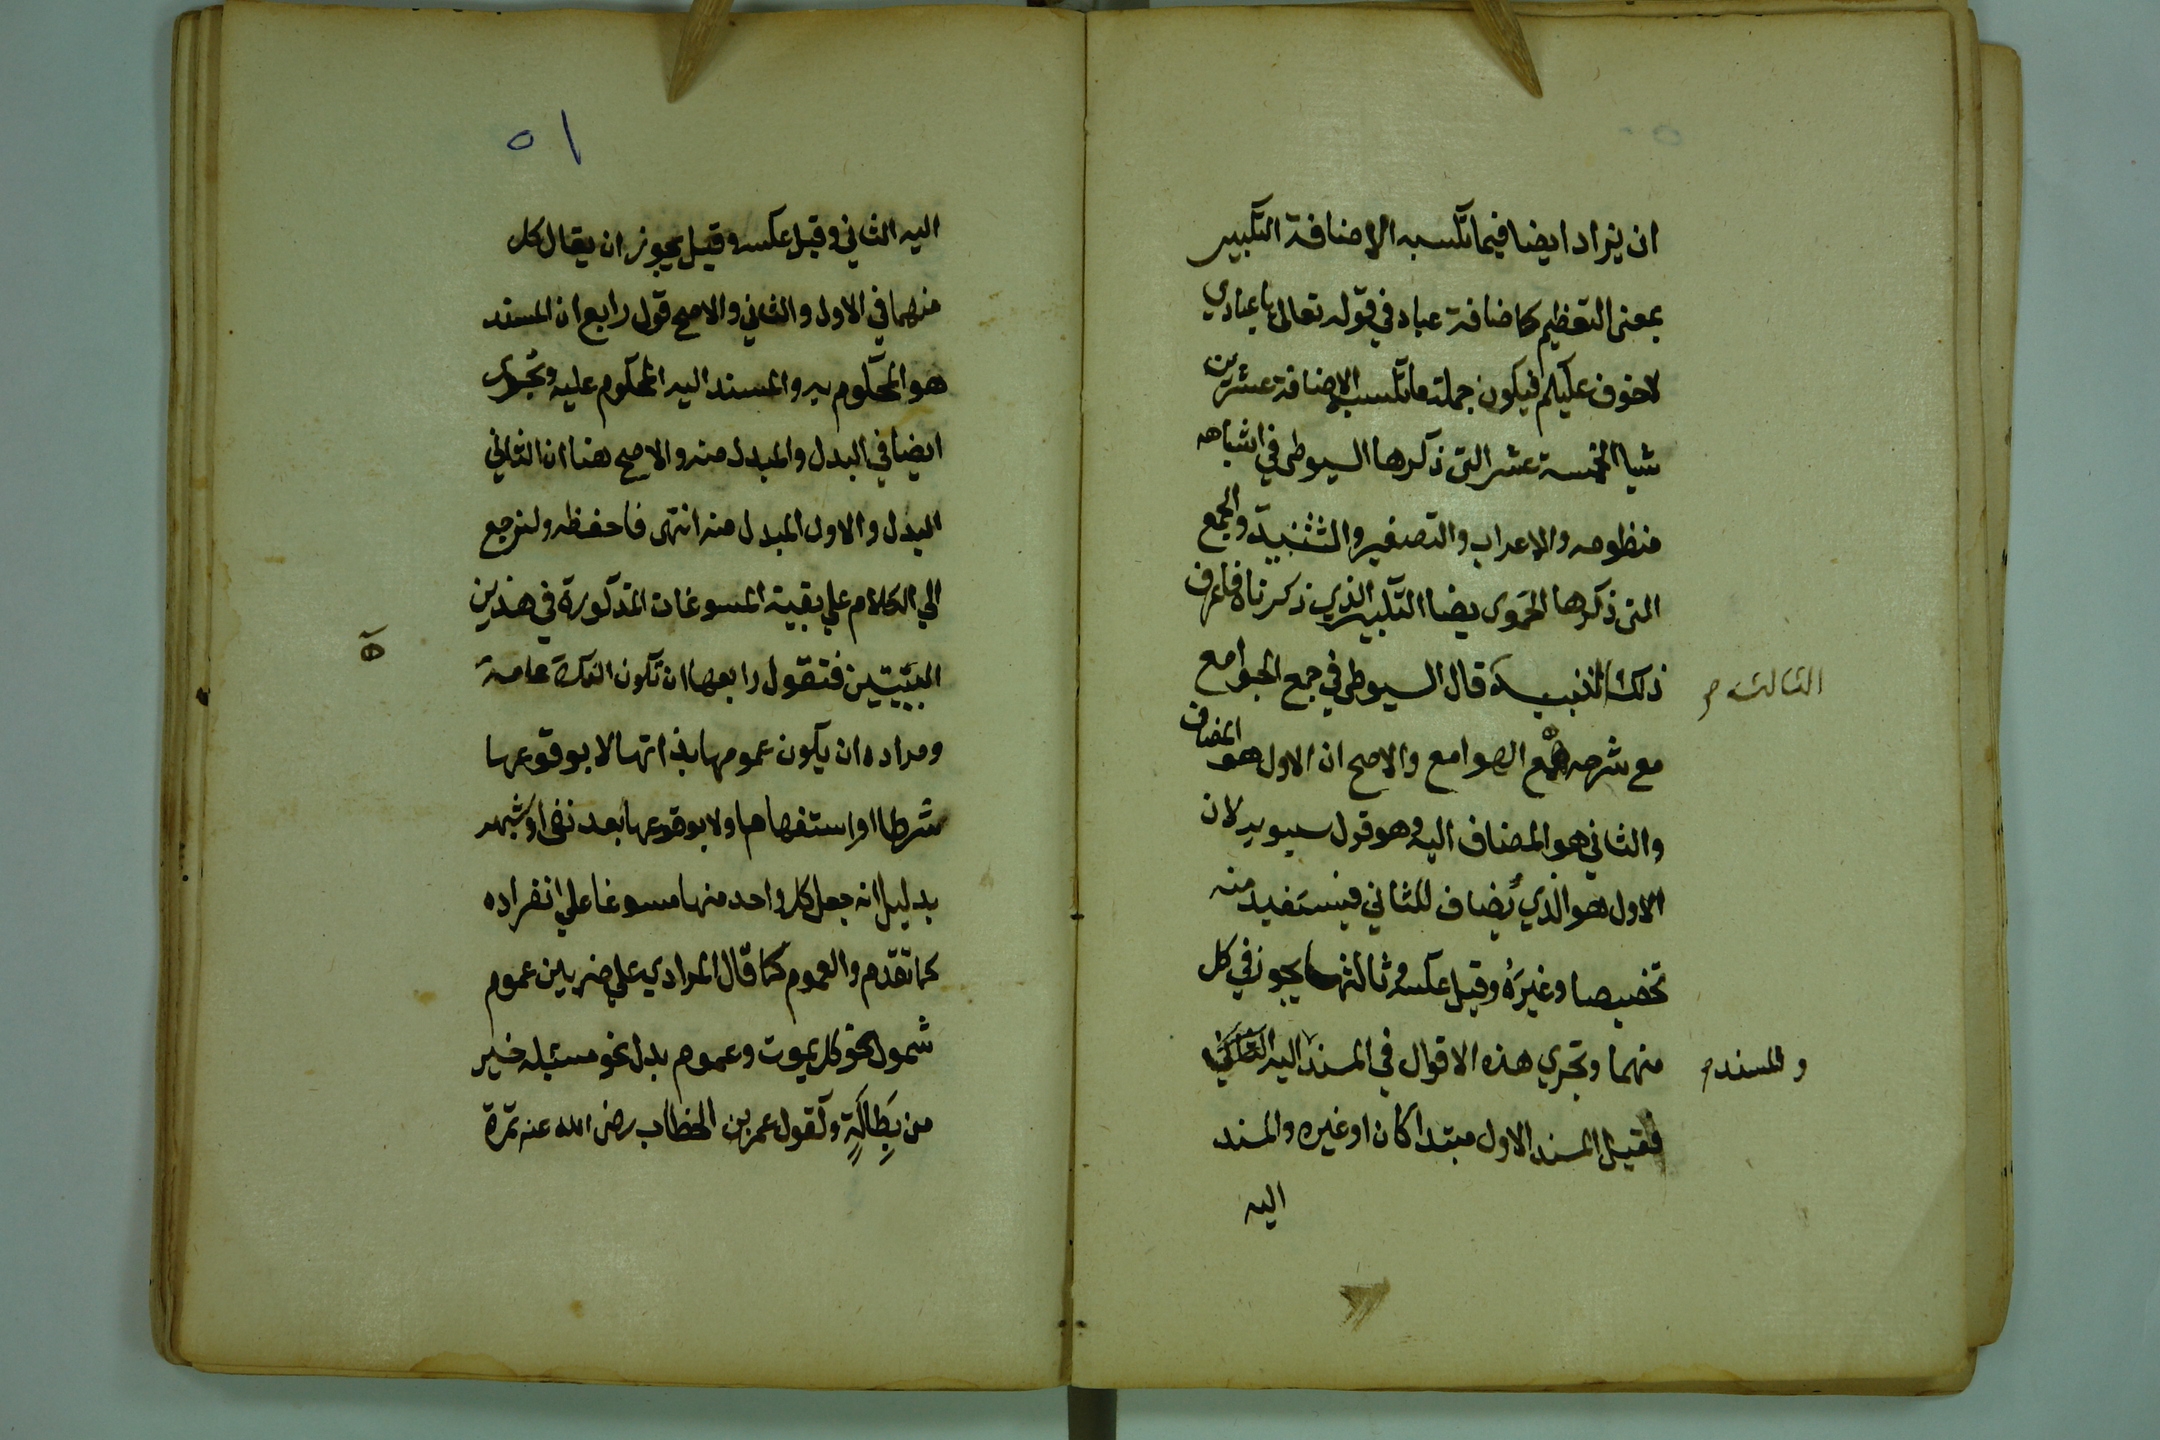 ان يزاد ايضا فيما تكسبه الاضافة التكبير
بمعنى التعظيم كاضافة عباد في قوله تعالى يا عبادي
لاخوف عليكم فيكون جملة ما تكسب الاضافة عشرين
شيا الخمسة عشر التى ذكرها السيوطى في اشباهه
منظومه والاعراب والتصغير والتثنية والجمع
التى ذكرها الحموى يضا التكبير الذي ذكرناه فاعرف
ذلك التنبيه قال السيوطى في جمع الجوامع
الثالثه
مع شرحه همع الهوامع والاصح ان الاول هو المضاف
والثاني هو المضاف اليه وهو قول سيبويه لان
الاول هو الذي يُضاف للثاني فيستفيد منه
تخصيصا وغيَره وقيل عكسه وثالثها يجوز في كل
منهما وتجري هذه الاقوال في المسند اليه
والمسند
فقيل المسند الاول مبتدا كان اوغيره والمسند
اليه
٥١
اليه الثاني وقيل عكسه وقيل يجوز ان يقال كل
منهما في الاول والثاني والاصح قول رابع ان المسند
هو المحكوم به والمسند اليه المحكوم عليه وتجرى
ايضا في البدل والمبدل منه والاصح هنا ان الثاني
البدل والاول المبدل منه انتهى فاحفظه ولنرجع
الي الكلام علي بقية المسوغات المذكورة في هذين
البيتين فنقول رابعها ان تكون النكرة عامة
ومراده ان يكون عمومها بذاتها لا بوقوعها
شرطا او استفهاما ولا بوقوعها بعد نفى اوشبهه
بدليل انه جعل كل واحد منها مسوغا علي انفراده
كما تقدم والعموم كما قال المرادي علي ضربين عموم
شمول نحو كل يموت وعموم بدل نحو مسئلة خير
من بَطَالَةٍ وكقول عمر بن الخطاب رضى الله عنه تمرة